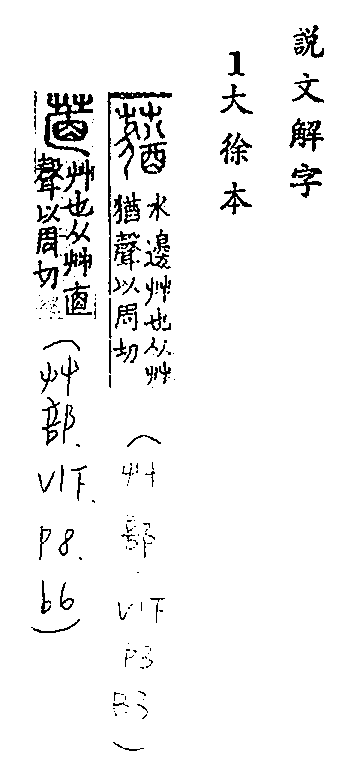 說文解字
1大徐本
蕕
水邊艸也从艸
猶聲以周切
(艸部.V1下P3B3)
艸也从艸
聲以周切
(艸部.V1下.P8.b6)